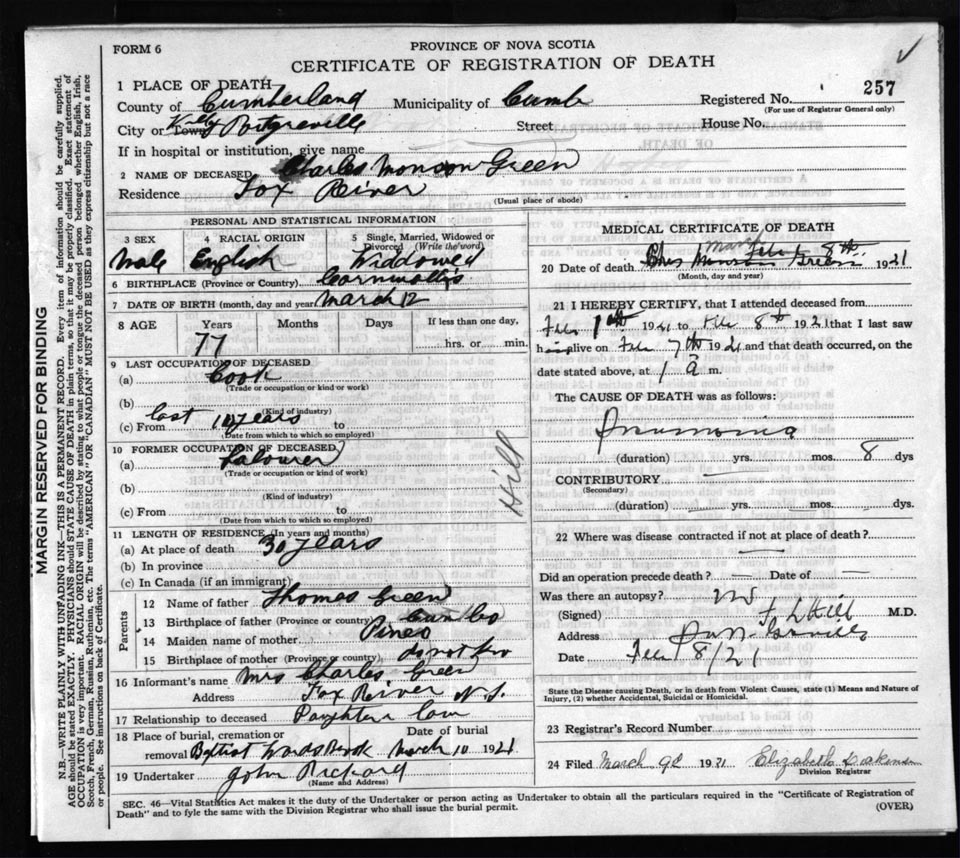 FORM 6
PROVINCE OF NOVA SCOTIA
CERTIFICATE OF REGISTRATION OF DEATH
1 PLACE OF DEATH
County of Cumberland Municipality of Cumb Registered No. 257
(For use of Registrar General only)
City or Town Street House No.
If in hospital or institution, give name
2 NAME OF DECEASED Charles Monson Green
Residence Fox River
(Usual place of abode)
PERSONAL AND STATISTICAL INFORMATION
3 SEX Male
4 RACIAL ORIGIN English
5 Single, Married, Widowed or Divorced (Write the word) Widdowed
6 BIRTHPLACE (Province or Country) Cornwallis
7 DATE OF BIRTH (month, day and year) March 12
8 AGE Years Months Days If less than one day,
77 hrs. or min.
9 LAST OCCUPATION OF DECEASED
(a) Cook
(Trade or occupation or kind of work)
(b)
(Kind of industry)
(c) From last 10 years to
(Date from which to which so employed)
10 FORMER OCCUPATION OF DECEASED
(a) Labourer
(Trade or occupation or kind of work)
(b)
(Kind of industry)
(c) From to
(Date from which to which so employed)
11 LENGTH OF RESIDENCE (In years and months)
(a) At place of death 30 years
(b) In province
(c) In Canada (if an immigrant)
Parents
12 Name of father Thomas Green
13 Birthplace of father (Province or country)
14 Maiden name of mother Pineo
15 Birthplace of mother (Province or country) do not
16 Informant's name Mrs Charles Green
Address Fox River N.S.
17 Relationship to deceased Daughter law
18 Place of burial, cremation or Date of burial
removal Baptist Wards Brook March 10 1921
19 Undertaker John Rickard
(Name and Address)
Hill
MEDICAL CERTIFICATE OF DEATH
20 Date of death 8th 1921
(Month, day and year)
21 I HEREBY CERTIFY, that I attended deceased from
1st 1921 to 8th 1921 that I last saw
him alive on 7th 1921 and that death occurred, on the
date stated above, at 1 a m.
The CAUSE OF DEATH was as follows:
Pneumonia
(duration) yrs. mos. 8 dys
CONTRIBUTORY
(Secondary)
(duration) yrs. mos. dys
22 Where was disease contracted if not at place of death?
Did an operation precede death? — Date of —
Was there an autopsy? no
(Signed) F L Hill M.D.
Address
Date 8/21
State the Disease causing Death, or in death from Violent Causes, state (1) Means and Nature of
Injury, (2) whether Accidental, Suicidal or Homicidal.
23 Registrar's Record Number
24 Filed March 1921 Elizabeth
Division Registrar
SEC. 46—Vital Statistics Act makes it the duty of the Undertaker or person acting as Undertaker to obtain all the particulars required in the "Certificate of Registration of
Death" and to fyle the same with the Division Registrar who shall issue the burial permit. (OVER)
MARGIN RESERVED FOR BINDING
N.B.—WRITE PLAINLY WITH UNFADING INK—THIS IS A PERMANENT RECORD. Every item of information should be carefully supplied.
AGE should be stated EXACTLY. PHYSICIANS should STATE CAUSE OF DEATH in plain terms, so that it may be properly classified. Exact statement of
OCCUPATION is very important. RACIAL ORIGIN will be described by stating to what people or tongue the deceased person belonged whether English, Irish,
Scotch, French, German, Russian, Ruthenian, etc. The terms "AMERICAN" OR "CANADIAN" MUST NOT BE USED as they express citizenship but not a race
or people. See instructions on back of Certificate.